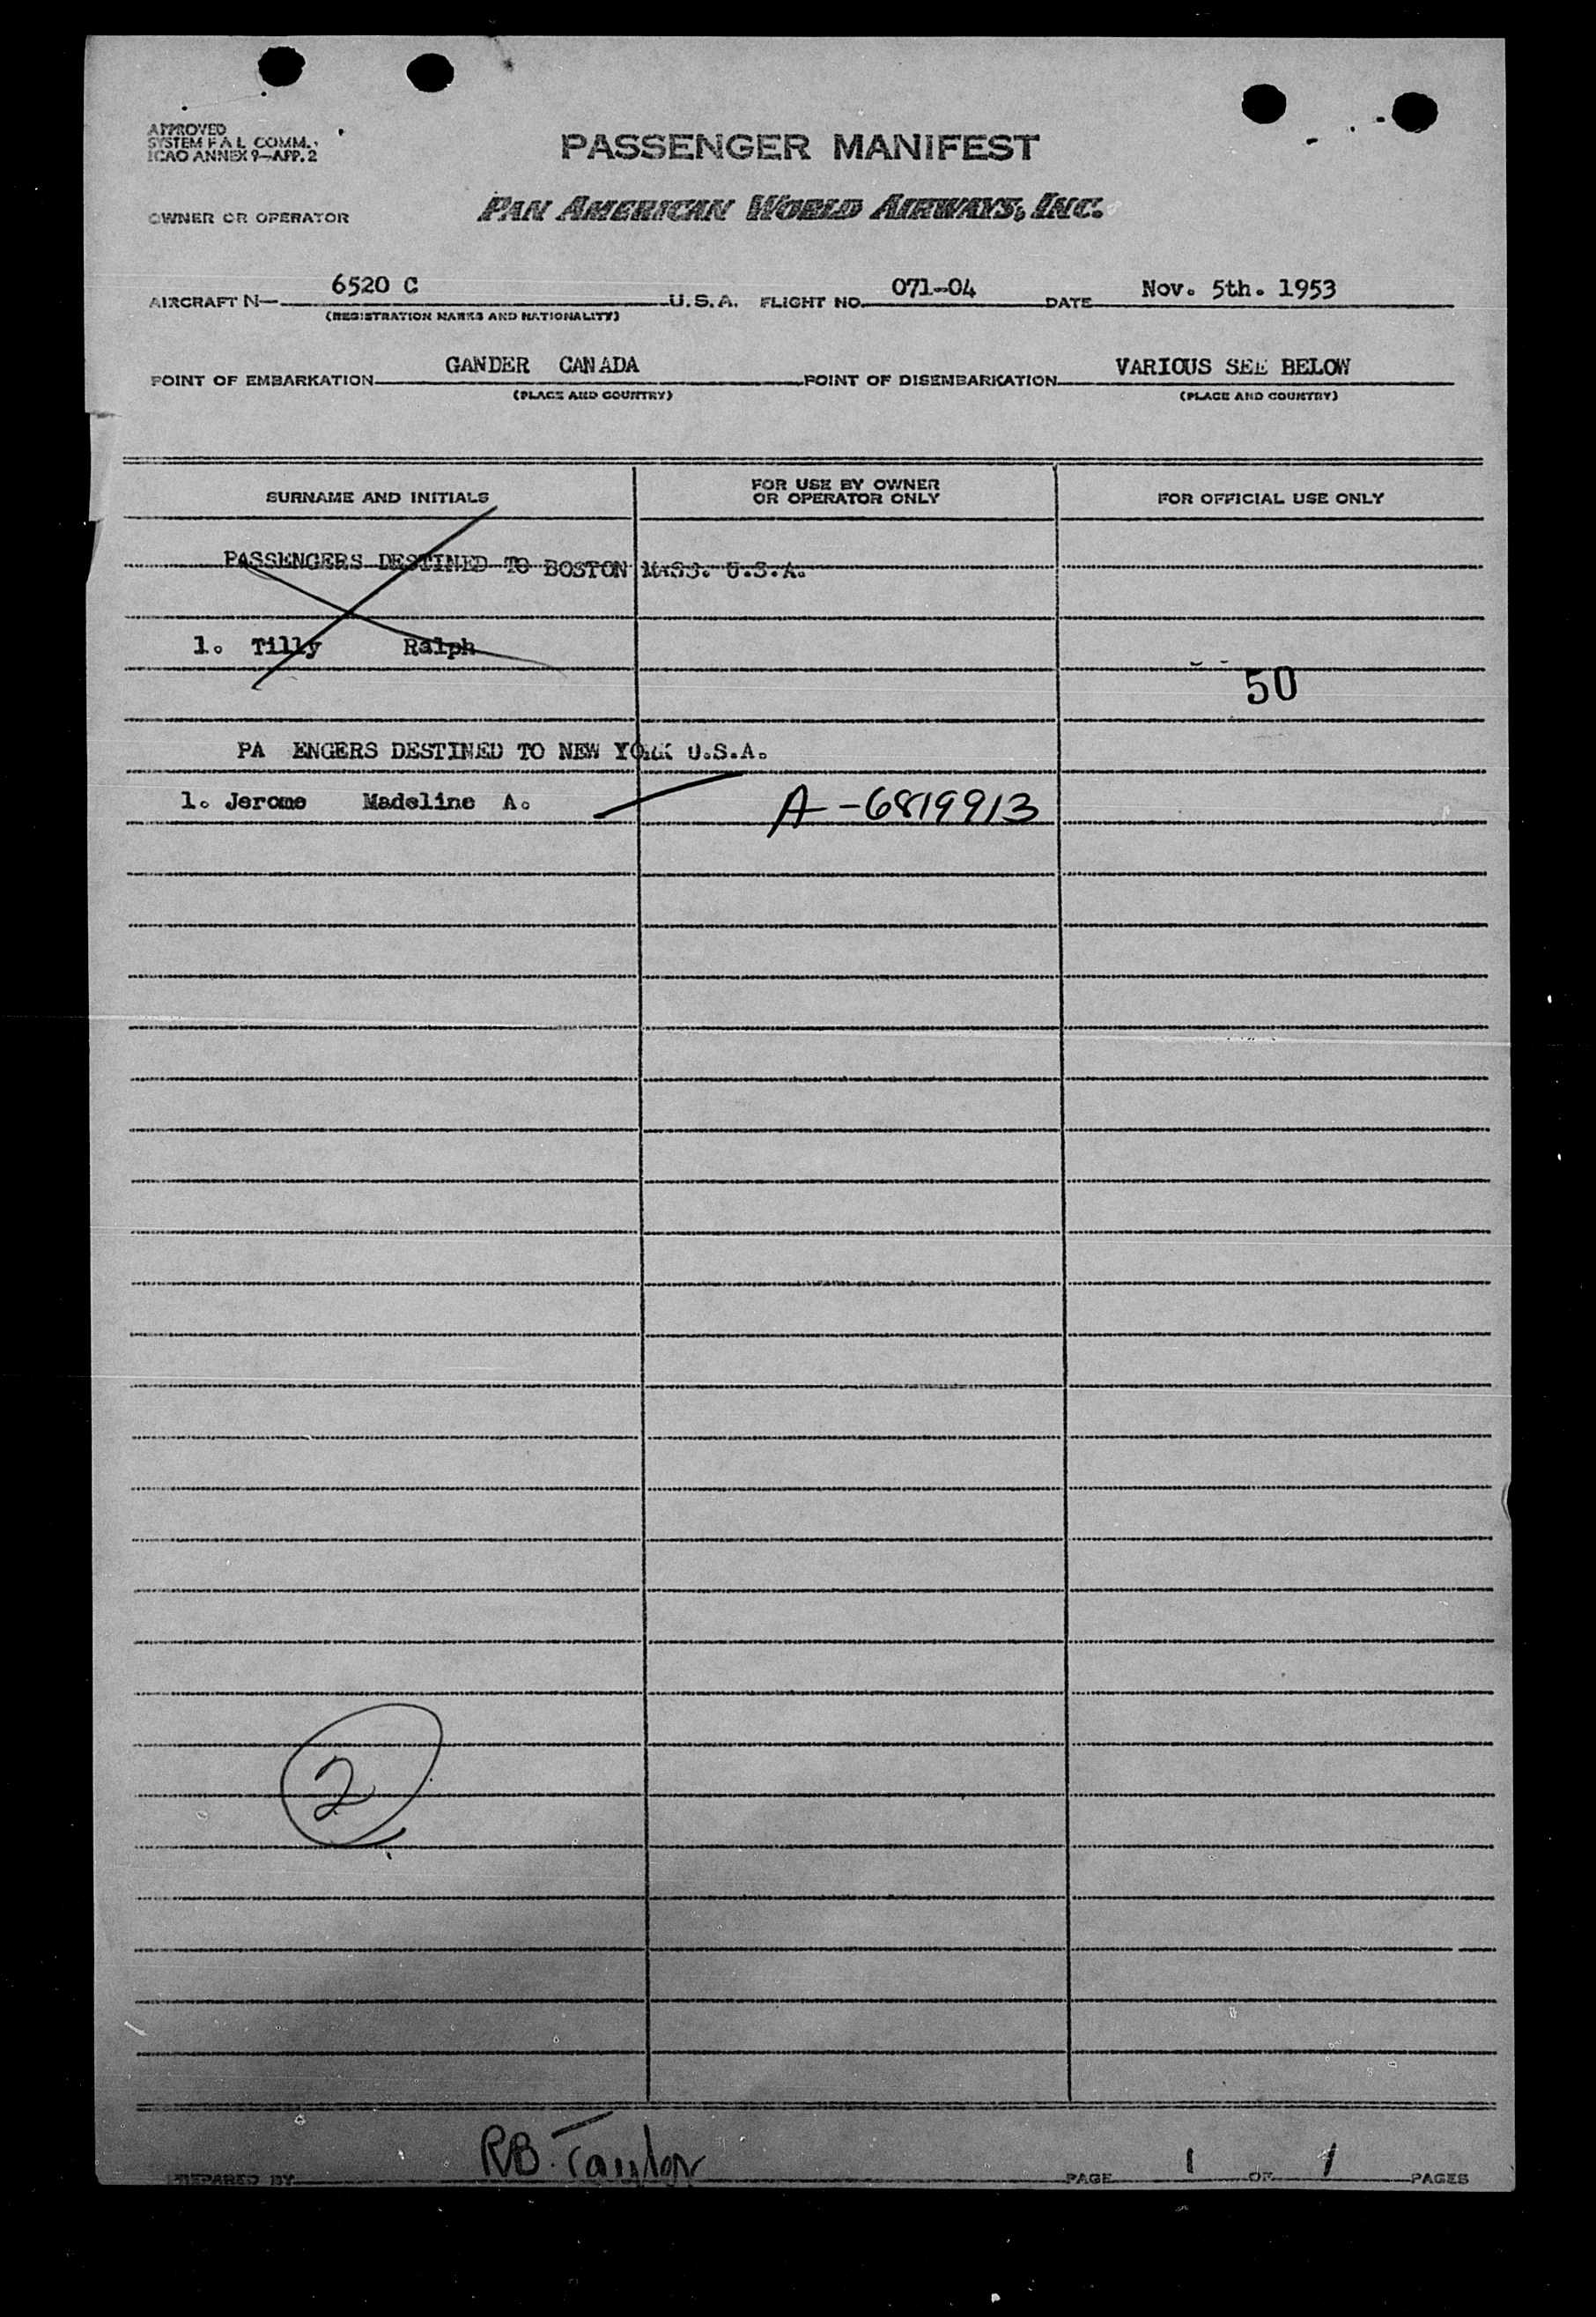 APPROVED
SYSTEM F A L COMM.
ICAO ANNEX 9—APP. 2
PASSENGER MANIFEST
OWNER OR OPERATOR PAN AMERICAN WORLD AIRWAYS, INC.
AIRCRAFT N— 6520 C U.S.A. FLIGHT NO. 071-04 DATE Nov. 5th. 1953
(REGISTRATION MARKS AND NATIONALITY)
POINT OF EMBARKATION GANDER CANADA POINT OF DISEMBARKATION VARIOUS SEE BELOW
(PLACE AND COUNTRY) (PLACE AND COUNTRY)
SURNAME AND INITIALS FOR USE BY OWNER OR OPERATOR ONLY FOR OFFICIAL USE ONLY
PASSENGERS DESTINED TO BOSTON MASS. U.S.A.
1. Tilly Ralph
50
PA ENGERS DESTINED TO NEW YORK U.S.A.
1. Jerome Madeline A. A-6819913
2
PREPARED BY RB. Taylor PAGE 1 OF 1 PAGES